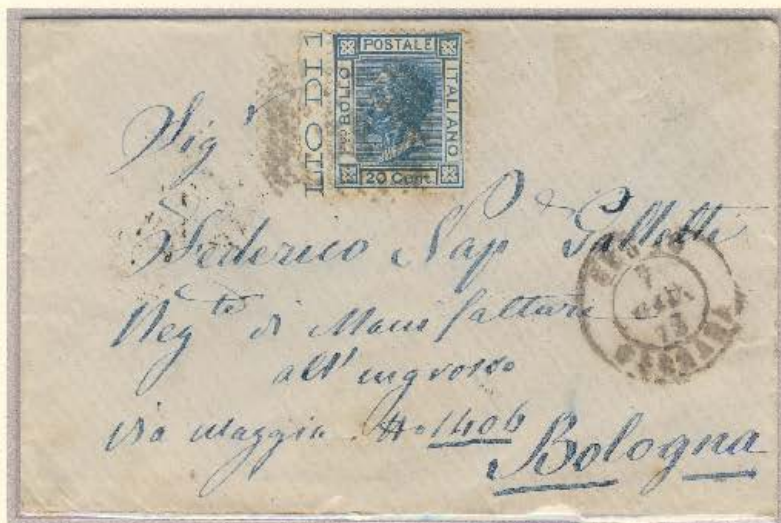 LIO DI 1
POSTALE
Co BOLLO
ITALIANO
20 Cent
Sigr
Federico Nap Galletti
Negte di Manifatture
all'ingrosso
Via Maggia No 1406
Bologna
7
13